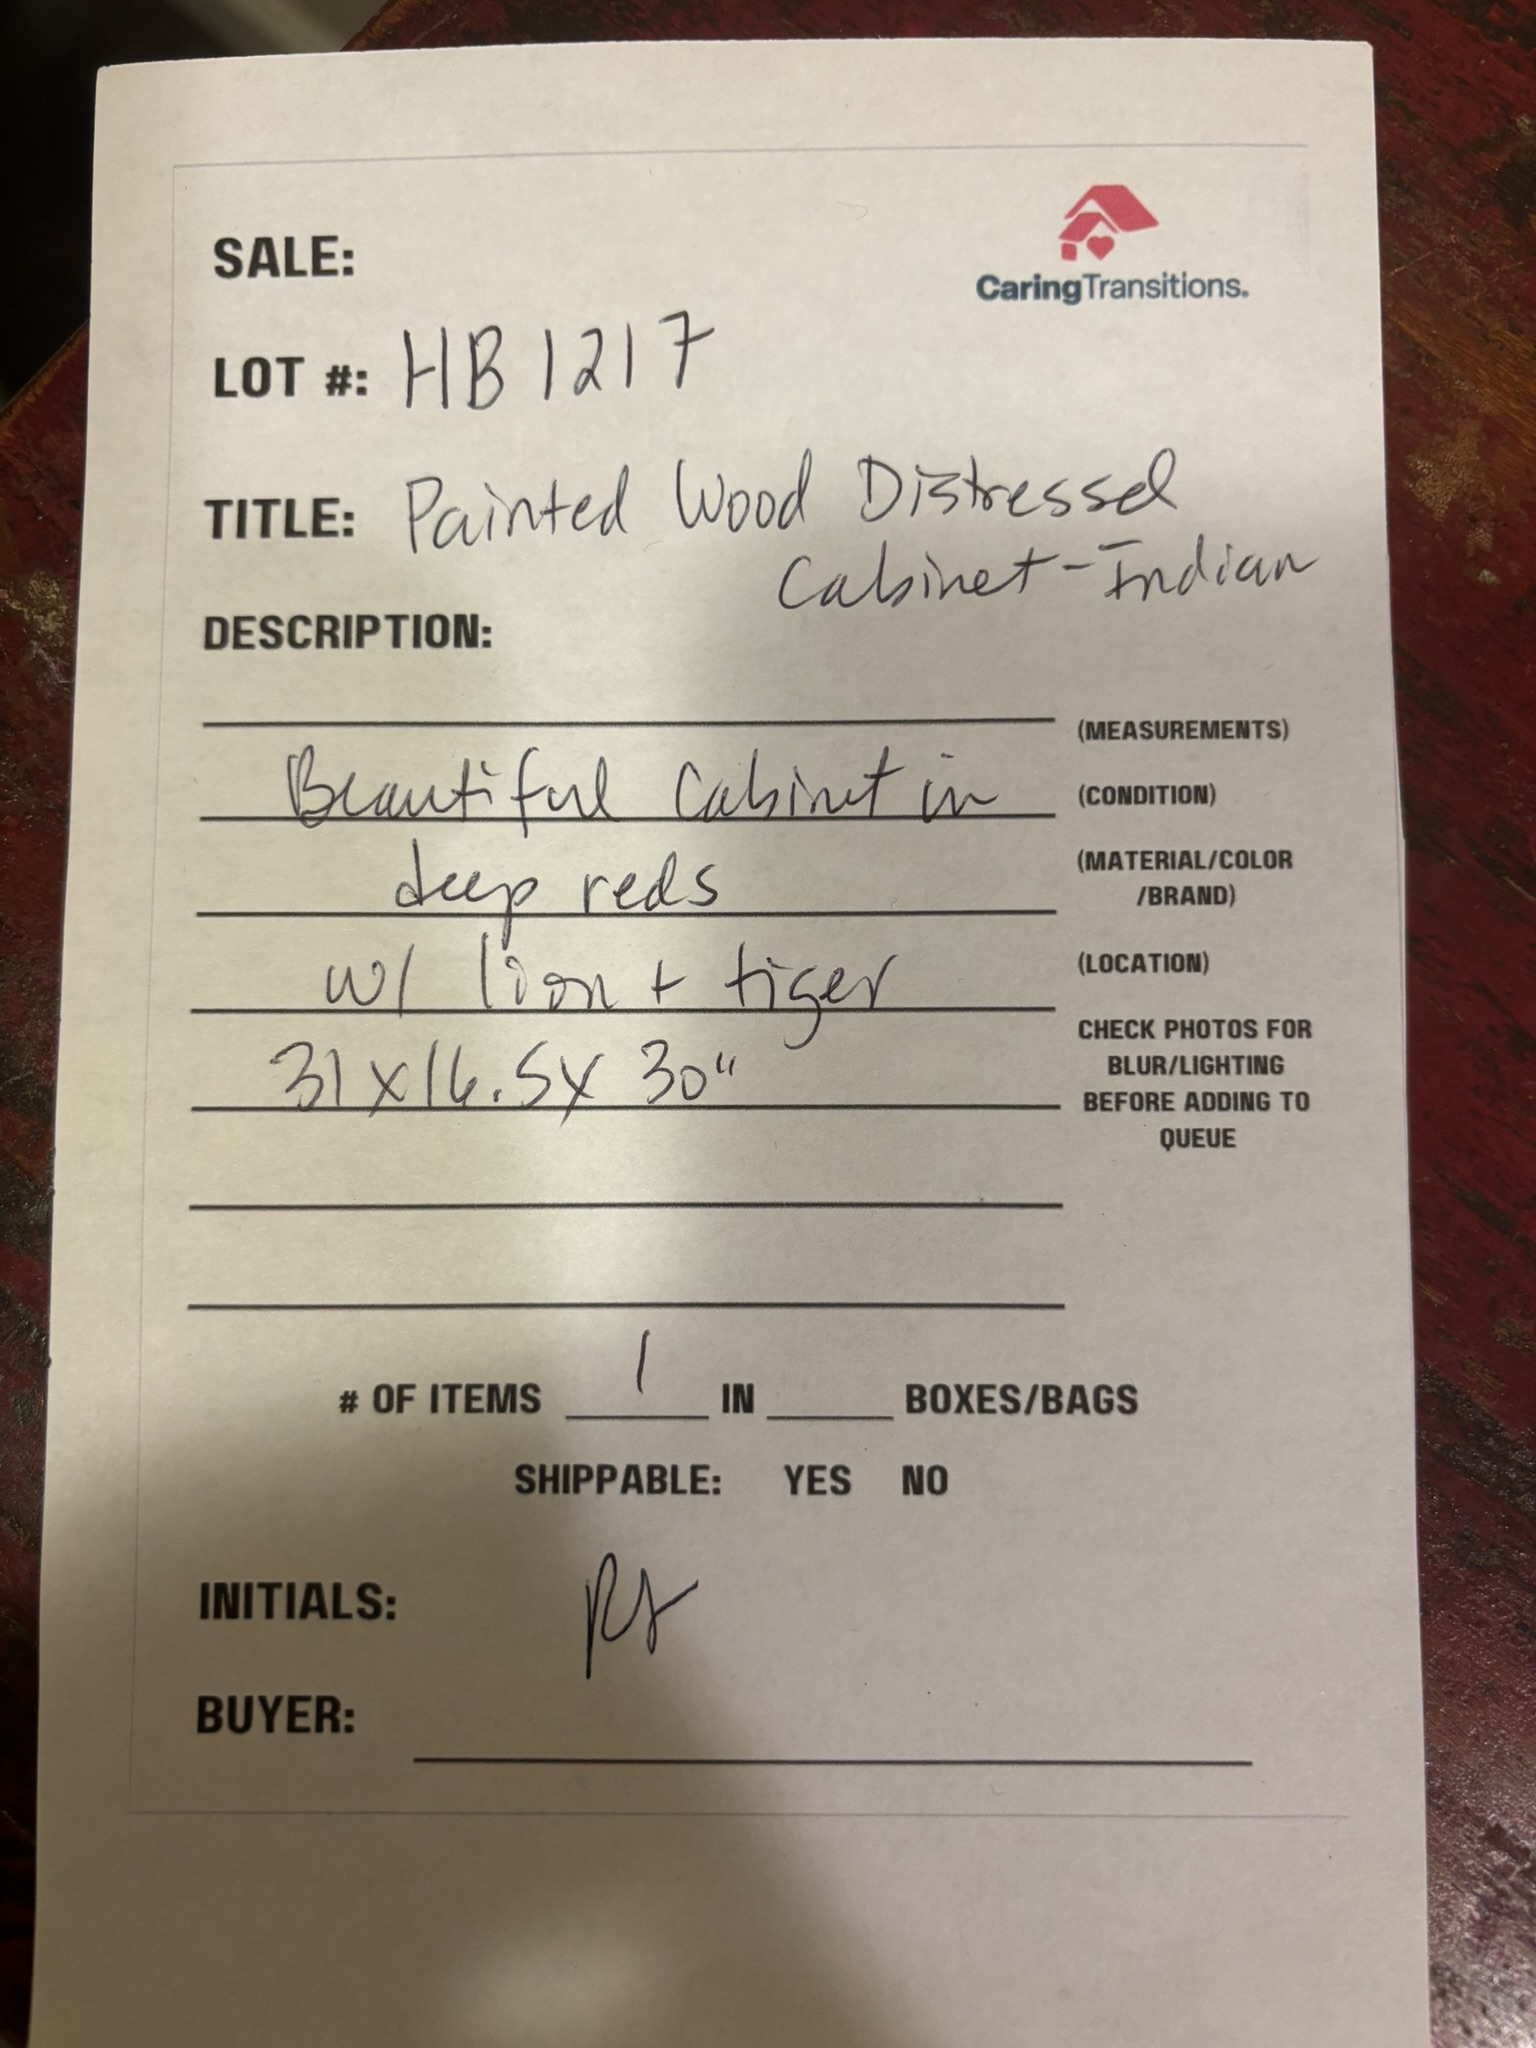 CaringTransitions.
SALE:
LOT #: HB1217
TITLE: Painted Wood Distressed
Cabinet - Indian
DESCRIPTION:
(MEASUREMENTS)
Beautiful Cabinet in (CONDITION)
deep reds (MATERIAL/COLOR
/BRAND)
w/ lion + tiger (LOCATION)
31x16.5x 30" CHECK PHOTOS FOR
BLUR/LIGHTING
BEFORE ADDING TO
QUEUE
# OF ITEMS 1 IN BOXES/BAGS
SHIPPABLE: YES NO
INITIALS:
BUYER: